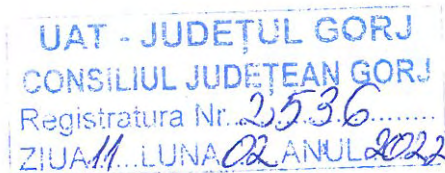 UAT - JUDEȚUL GORJ
CONSILIUL JUDEȚEAN GORJ
Registratura Nr...2536.........
ZIUA11...LUNA02ANUL2022